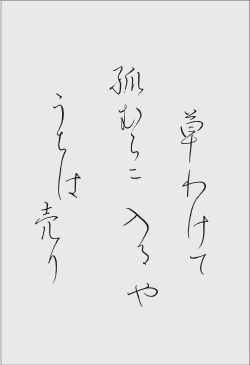 草わけて
孤むらに入るや
うちは売り